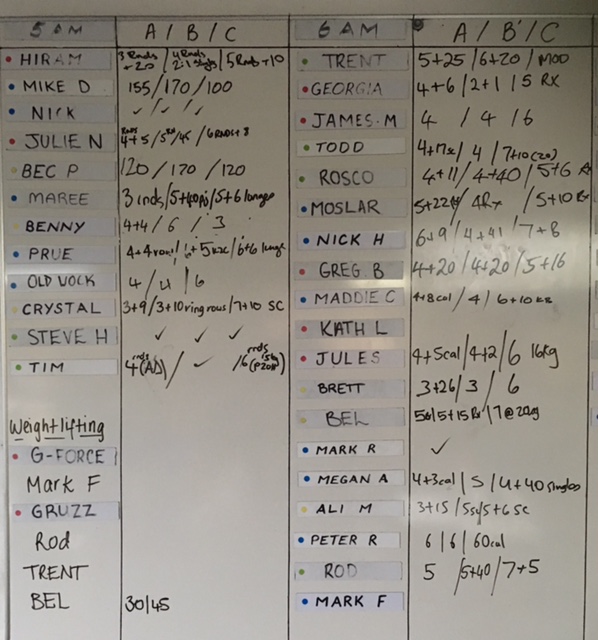 5 AM A / B / C
HIRAM 3 Rnds +20 / 4 Rnds / 5 Rnds +10
MIKE D 155 / 170 / 100
NICK ✓ ✓ / ✓
JULIE N Rnds 4+5 / / 6 RNDS + 8
BEC P 120 / 170 / 120
MAREE 3 rnds / 5+40 / 5+6 lunges
BENNY 4+4 / 6 / 3
PRUE 4+4 row / / 6+6 lunge
OLD VOCK 4 / 4 / 6
CRYSTAL 3+9 / 3+10 ring rows / 7+10 SC
STEVE H ✓ ✓ ✓
TIM 4 rnds (AD) / ✓ / 6 rnds
Weightlifting
G-FORCE
Mark F
GRUZZ
Rod
TRENT
BEL 30/45
6 AM A / B / C
TRENT 5+25 / 6+20 / MOD
GEORGIA 4+6 / 2+1 / 5 RX
JAMES.M 4 / 4 / 6
TODD 4+17 / 4 / 7+10 (20)
ROSCO 4+11 / 4+40 / 5+6
MOSLAR 5+22 / 4Rx / 5+10 Rx
NICK H 6+9 / 4+41 / 7+8
GREG.B 4+20 / 4+20 / 5+16
MADDIE C 4+8cal / 4 / 6+10
KATH L
JULES 4+5cal / 4+2 / 6 16kg
BRETT 3+26 / 3 / 6
BEL / 5+15 Rx / 7@20kg
MARK R ✓
MEGAN A 4+3cal / 5 / 4+40 singles
ALI M 3+15 / / 5+6 SC
PETER R 6 | 6 | 60cal
ROD 5 / 5+40 / 7+5
MARK F